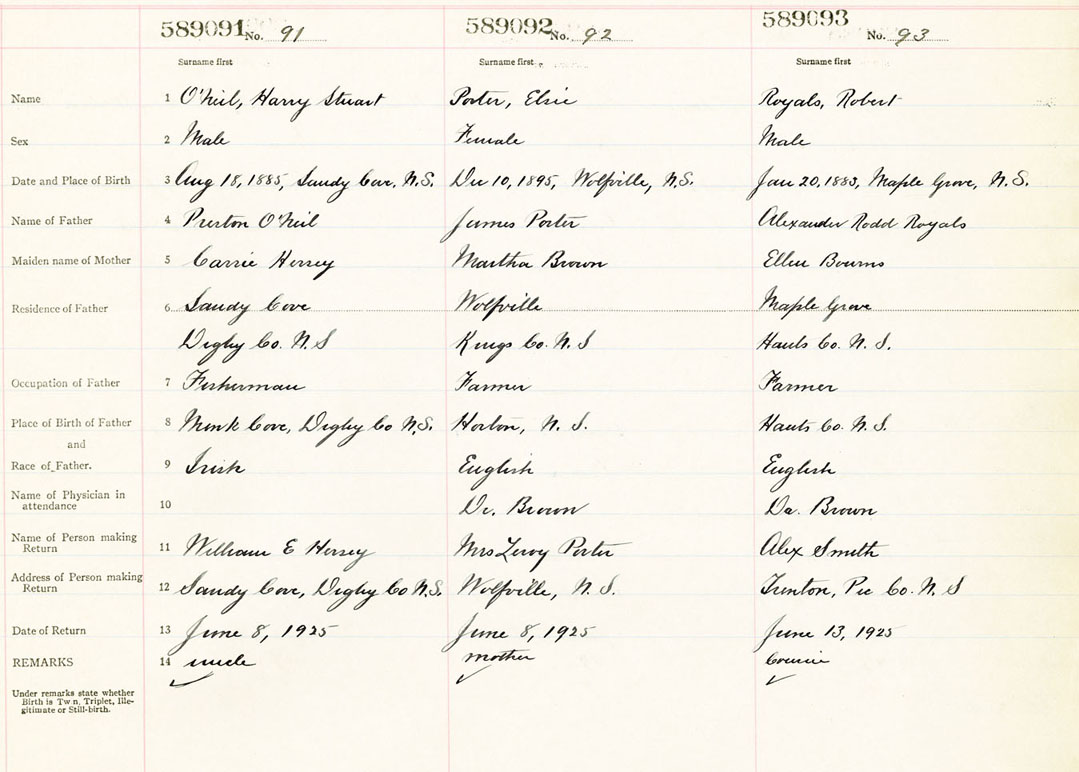 589091 No. 91 589092 No. 92 589093 No. 93
Surname first Surname first Surname first
Name 1 O'Neil, Harry Stuart Porter, Elsie Royals, Robert
Sex 2 Male Female Male
Date and Place of Birth 3 Aug 18, 1885, Sandy Cove, N.S. Dec 10, 1895, Wolfville, N.S. Jan 20, 1883, Maple Grove, N.S.
Name of Father 4 Preston O'Neil James Porter Alexander Rodd Royals
Maiden name of Mother 5 Carrie Hersey Martha Brown Ellen Bourns
Residence of Father 6 Sandy Cove Wolfville Maple Grove
Digby Co. N.S Kings Co. N.S Hants Co. N.S.
Occupation of Father 7 Fisherman Farmer Farmer
Place of Birth of Father 8 Mink Cove, Digby Co N.S. Horton, N.S. Hants Co. N.S.
and
Race of Father. 9 Irish English English
Name of Physician in
attendance 10 Dr. Brown Da. Brown
Name of Person making
Return 11 William E Hersey Mrs Leroy Porter Alex Smith
Address of Person making
Return 12 Sandy Cove, Digby Co N.S. Wolfville, N.S. Trenton, Pic Co. N.S
Date of Return 13 June 8, 1925 June 8, 1925 June 13, 1925
REMARKS 14 uncle mother cousin
Under remarks state whether
Birth is Twin, Triplet, Ille-
gitimate or Still-birth.